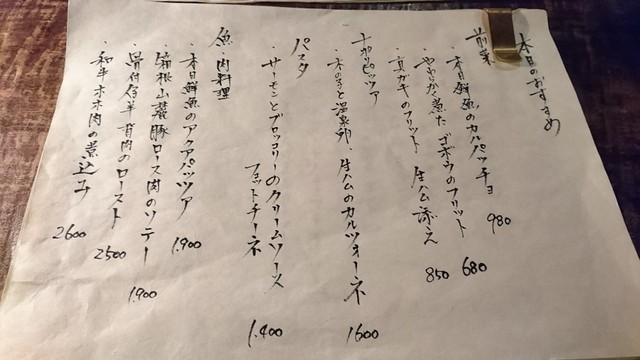 本日のおすすめ
前菜
・本日鮮魚のカルパッチョ 980
・やわらかく煮たゴボウのフリット 680
・真ガキのフリット 生ハム添え 850
ナポリピッツァ
・木のこと温泉卵・生ハムのカルツォーネ 1600
パスタ
・サーモンとブロッコリーのクリームソース
フェットチーネ 1,400
魚・肉料理
・本日鮮魚のアクアパッツァ 1,900
・箱根山麓豚ロース肉のソテー 1,900
・骨付仔羊背肉のロースト 2500
・和牛ホホ肉の煮込み 2600